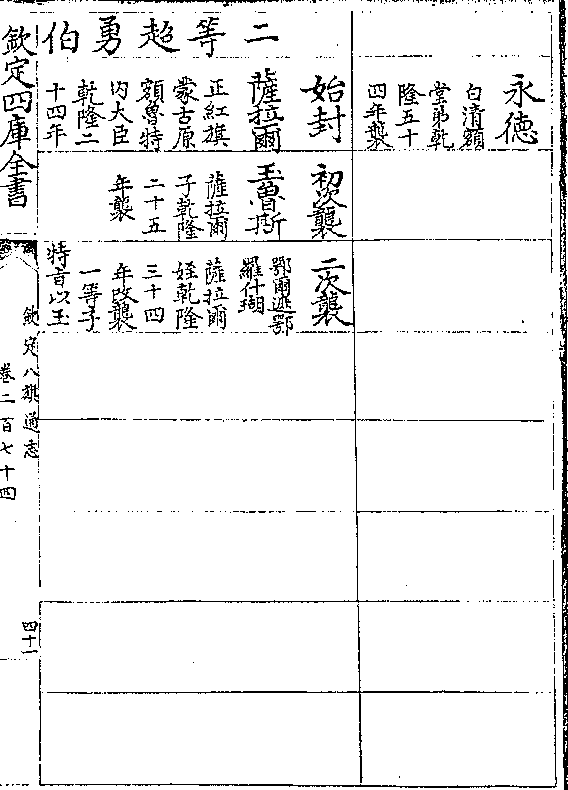 永德
白清額
堂弟乾
隆五十
四年襲
二等超勇伯
始封
薩拉爾
正紅旗
蒙古原
額魯特
内大臣
乾隆二
十四年
初次襲
玉魯斯
薩拉爾
子乾隆
二十五
年襲
二次襲
鄂爾遜鄂
羅什瑚
薩拉爾
姪乾隆
三十四
年改襲
一等子
特旨以玉
欽定四庫全書
欽定八旗通志
卷二百七十四
四十一